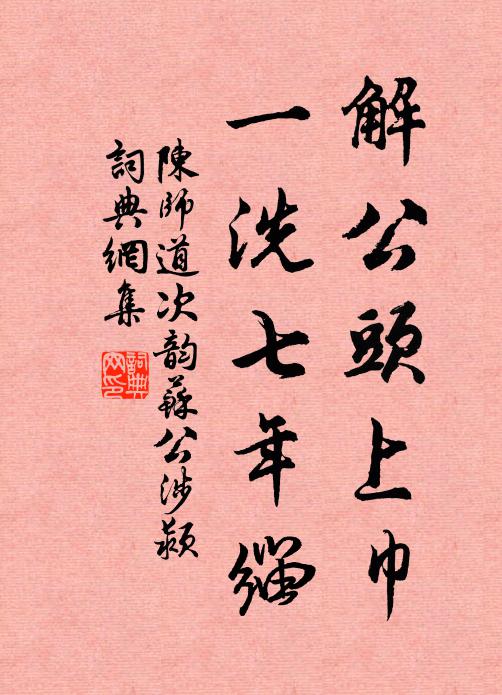 解公頭上巾
一洗七年緇
陳師道次韵蘇公涉潁
詞典網集
詞典网印